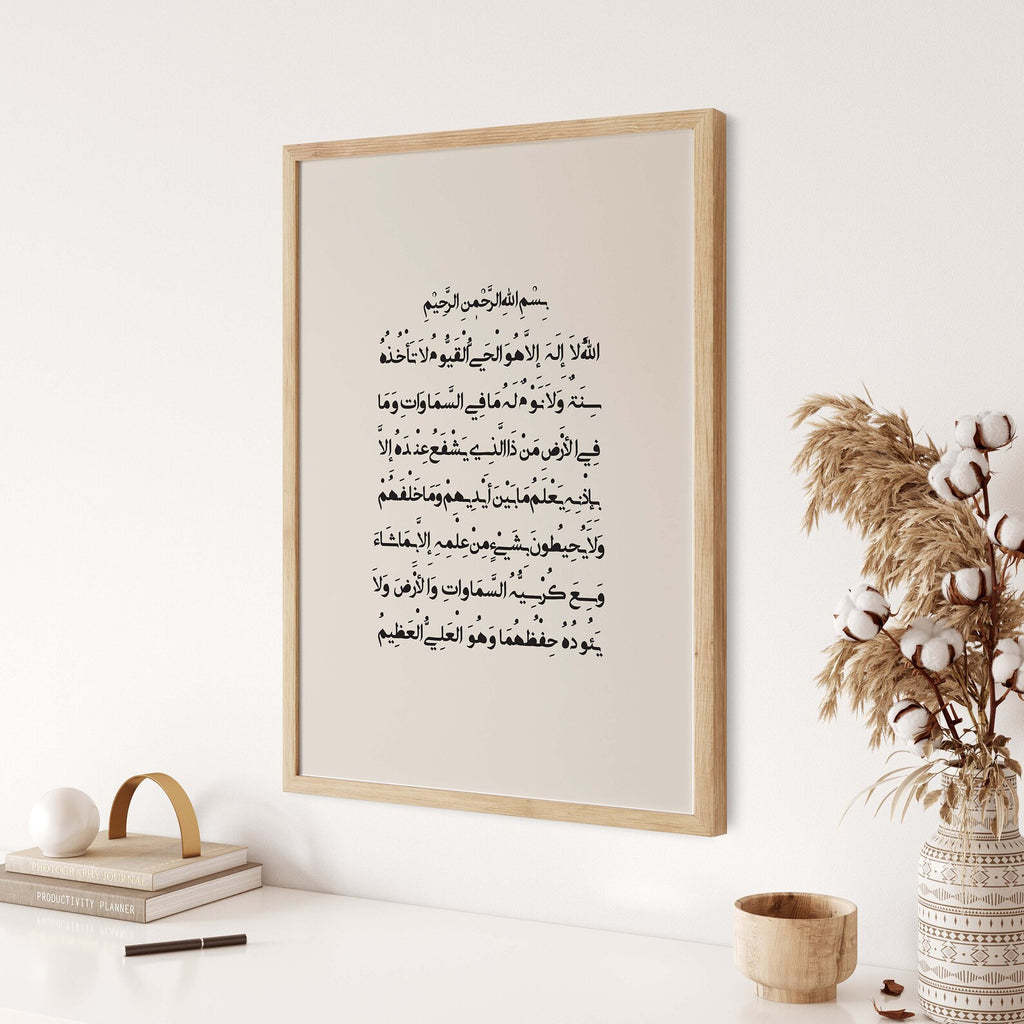 بِسْمِ اللهِ الرَّحْمٰنِ الرَّحِيْمِ
اللهُ لَا إِلَهَ إِلَّا هُوَ الْحَيُّ الْقَيُّومُ لَا تَأْخُذُهُ
سِنَةٌ وَلَا نَوْمٌ لَهُ مَا فِي السَّمَاوَاتِ وَمَا
فِي الْأَرْضِ مَنْ ذَا الَّذِي يَشْفَعُ عِنْدَهُ إِلَّا
بِإِذْنِهِ يَعْلَمُ مَا بَيْنَ أَيْدِيهِمْ وَمَا خَلْفَهُمْ
وَلَا يُحِيطُونَ بِشَيْءٍ مِنْ عِلْمِهِ إِلَّا بِمَا شَاءَ
وَسِعَ كُرْسِيُّهُ السَّمَاوَاتِ وَالْأَرْضَ وَلَا
يَئُودُهُ حِفْظُهُمَا وَهُوَ الْعَلِيُّ الْعَظِيمُ
PHOTOGRAPHY JOURNAL
PRODUCTIVITY PLANNER